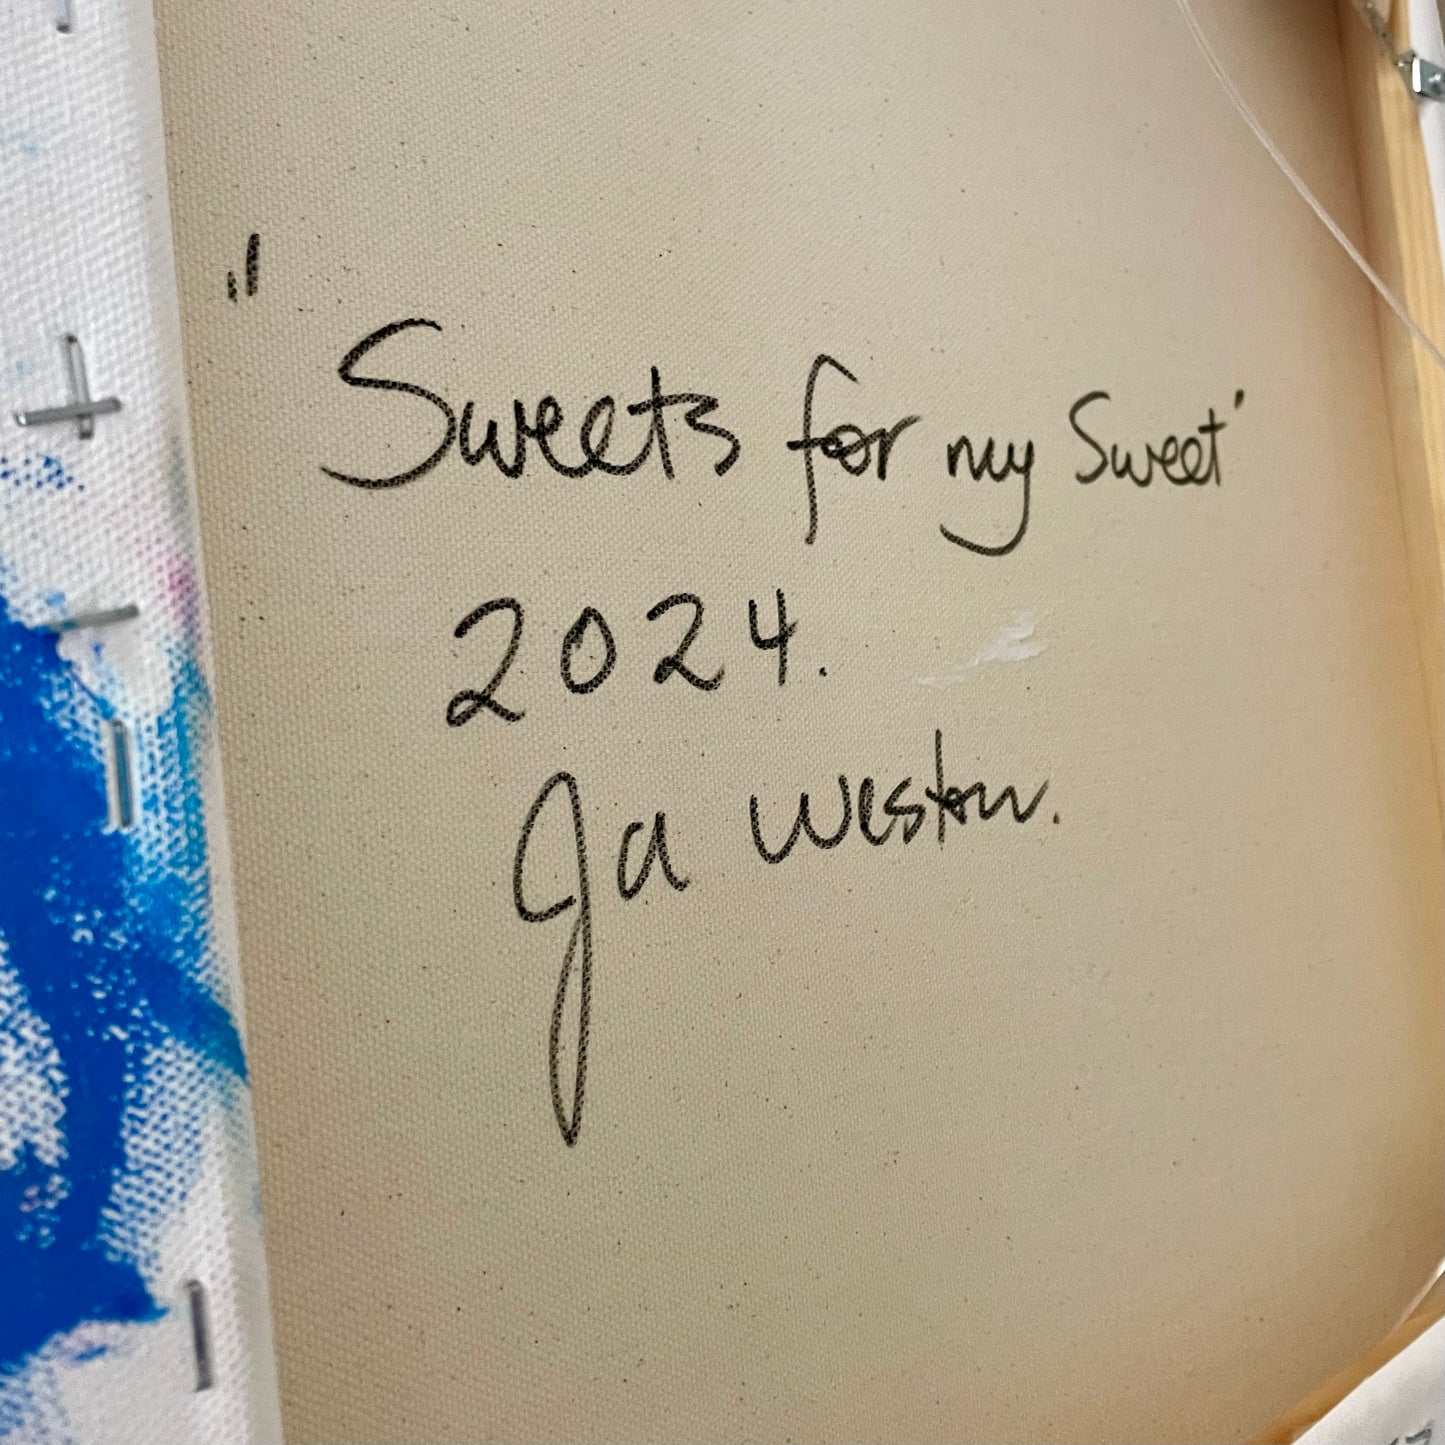 "Sweets for my Sweet'
2024.
Ja Weston.